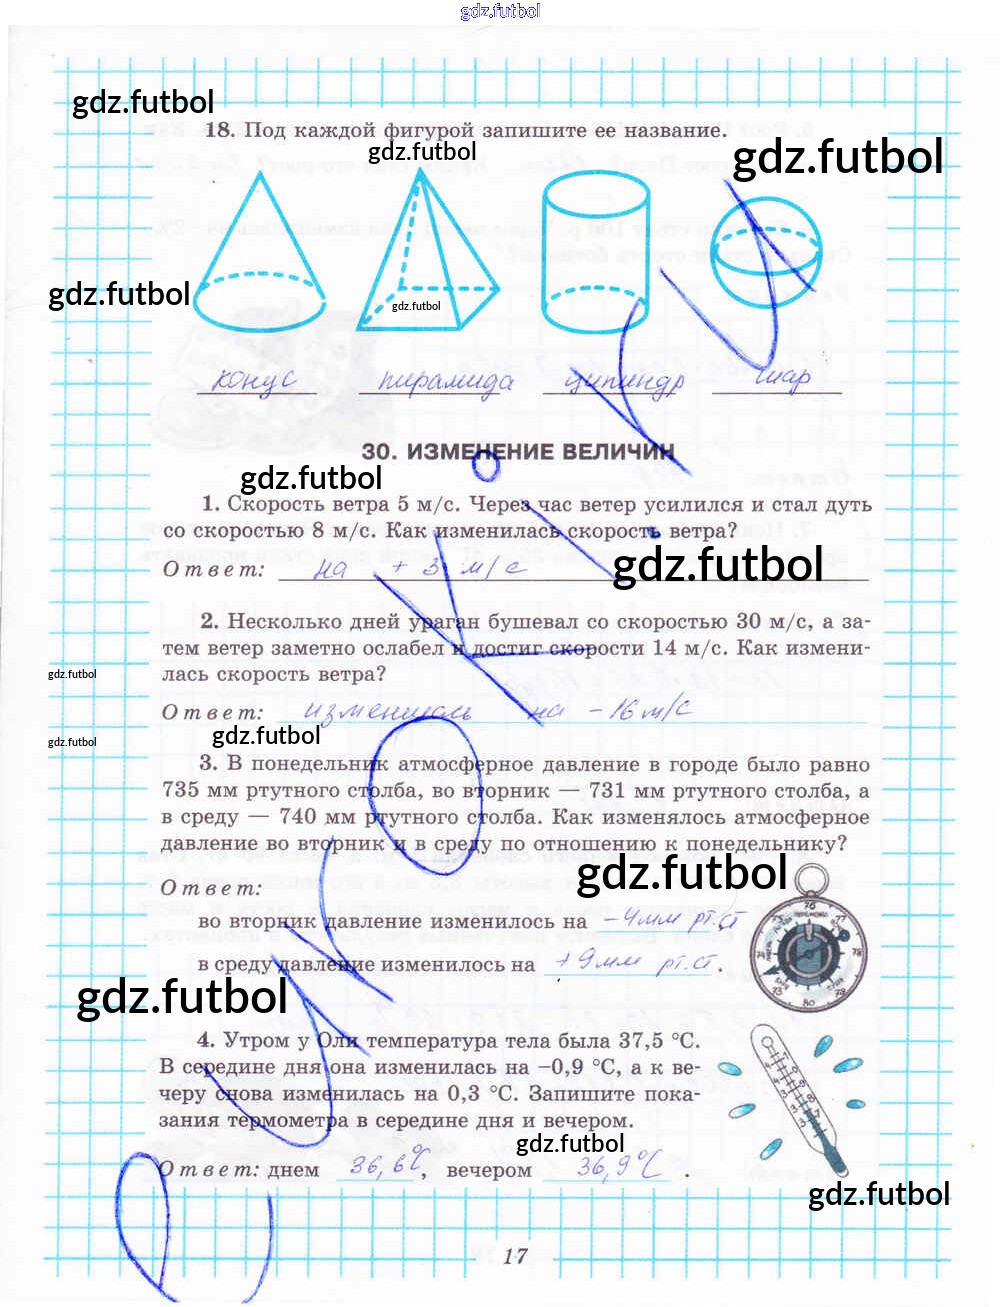 gdz.futbol
gdz.futbol
18. Под каждой фигурой запишите ее название.
gdz.futbol
gdz.futbol
gdz.futbol
gdz.futbol
конус пирамида цилиндр шар
30. ИЗМЕНЕНИЕ ВЕЛИЧИН
gdz.futbol
1. Скорость ветра 5 м/с. Через час ветер усилился и стал дуть
со скоростью 8 м/с. Как изменилась скорость ветра?
gdz.futbol
Ответ: на + 3 м/с
2. Несколько дней ураган бушевал со скоростью 30 м/с, а за-
тем ветер заметно ослабел и достиг скорости 14 м/с. Как измени-
лась скорость ветра?
gdz.futbol
Ответ: на – 16 м/с
gdz.futbol
gdz.futbol
3. В понедельник атмосферное давление в городе было равно
735 мм ртутного столба, во вторник — 731 мм ртутного столба, а
в среду — 740 мм ртутного столба. Как изменялось атмосферное
давление во вторник и в среду по отношению к понедельнику?
gdz.futbol
Ответ:
во вторник давление изменилось на – 4мм рт.ст
в среду давление изменилось на + 9мм рт.ст.
gdz.futbol
4. Утром у Оли температура тела была 37,5 °С.
В середине дня она изменилась на –0,9 °С, а к ве-
черу снова изменилась на 0,3 °С. Запишите пока-
зания термометра в середине дня и вечером.
gdz.futbol
Ответ: днем 36,6°С, вечером 36,9°С.
gdz.futbol
17